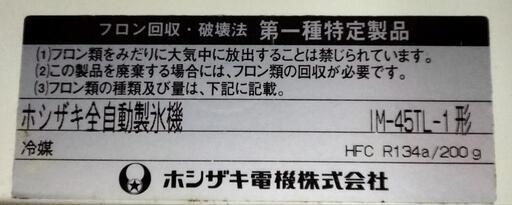 フロン回収・破壊法 第一種特定製品
(1)フロン類をみだりに大気中に放出することは禁じられています。
(2)この製品を廃棄する場合には、フロン類の回収が必要です。
(3)フロン類の種類及び量は、下記に記載。
ホシザキ全自動製氷機 IM-45TL-1形
冷媒 HFC R134a/200g
ホシザキ電機株式会社